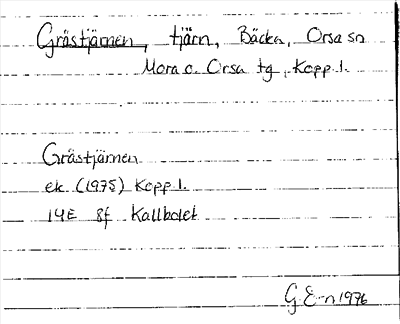 Gråstjärnen, tjärn, Bäcka, Orsa sn
Mora o. Orsa tg, Kopp l.
Gråstjärnen
ek (1975) Kopp l.
14E 8f Kallbolet
G E-n 1976